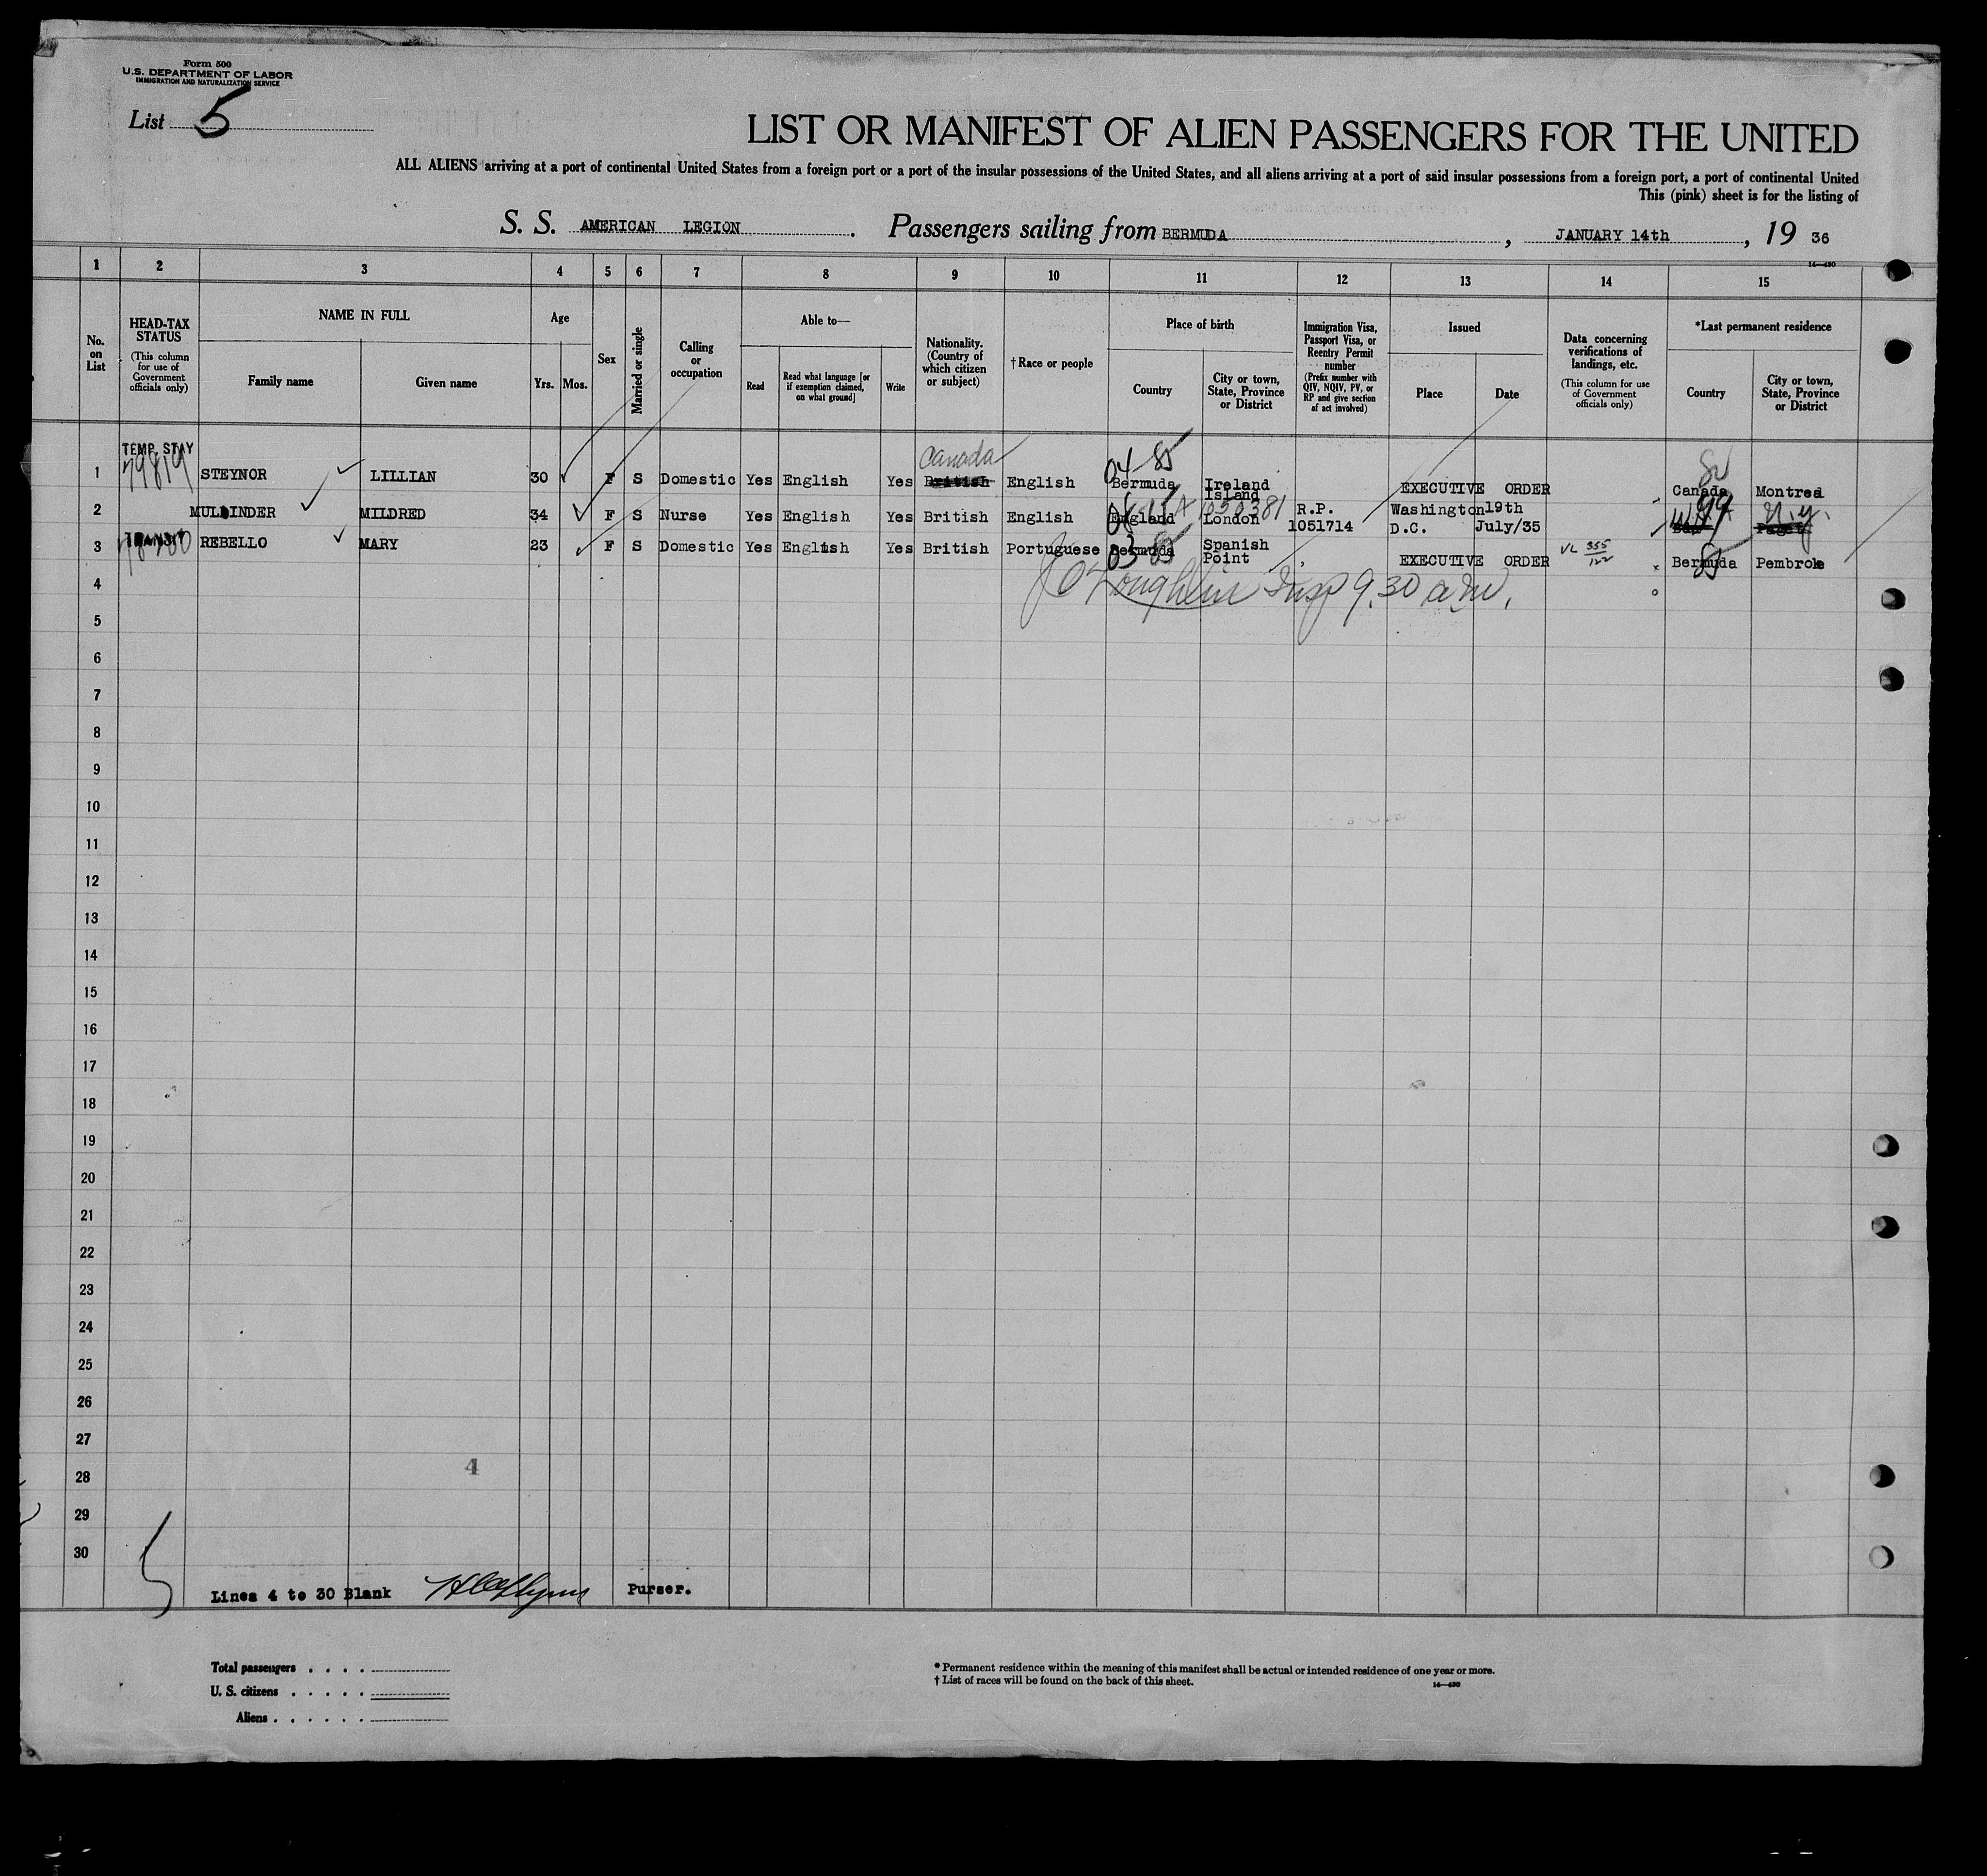 Form 500
U.S. DEPARTMENT OF LABOR
IMMIGRATION AND NATURALIZATION SERVICE
List 5
LIST OR MANIFEST OF ALIEN PASSENGERS FOR THE UNITED
ALL ALIENS arriving at a port of continental United States from a foreign port or a port of the insular possessions of the United States, and all aliens arriving at a port of said insular possessions from a foreign port, a port of continental United
This (pink) sheet is for the listing of
S. S. AMERICAN LEGION . Passengers sailing from BERMUDA , JANUARY 14th , 19 36
14—430
1 2 3 4 5 6 7 8 9 10 11 12 13 14 15
No. on List
HEAD-TAX STATUS
(This column for use of Government officials only)
NAME IN FULL
Family name
Given name
Age
Yrs. Mos.
Sex
Married or single
Calling or occupation
Able to—
Read
Read what language [or if exemption claimed, on what ground]
Write
Nationality. (Country of which citizen or subject)
† Race or people
Place of birth
Country
City or town, State, Province or District
Immigration Visa, Passport Visa, or Reentry Permit number
(Prefix number with QIV, NQIV, PV, or RP and give section of act involved)
Issued
Place
Date
Data concerning verifications of landings, etc.
(This column for use of Government officials only)
*Last permanent residence
Country
City or town, State, Province or District
TEMP. STAY
79819
Canada
04 85
1 STEYNOR LILLIAN 30 F S Domestic Yes English Yes British English Bermuda Ireland Island EXECUTIVE ORDER Canada Montreal
2 MULLINDER MILDRED 34 F S Nurse Yes English Yes British English England London R.P. 1051714 Washington D.C. 19th July/35 99 N.Y. Paget
TRANSIT
3 REBELLO MARY 23 F S Domestic Yes English Yes British Portuguese Bermuda Spanish Point EXECUTIVE ORDER VL 355/122 Bermuda Pembroke
03 85
85
J O'Loughlin Insp 9.30 a.m.
4
5
6
7
8
9
10
11
12
13
14
15
16
17
18
19
20
21
22
23
24
25
26
27
4
28
29
30
Lines 4 to 30 Blank Purser.
Total passengers . . . .
U. S. citizens . . . . .
Aliens . . . . . .
* Permanent residence within the meaning of this manifest shall be actual or intended residence of one year or more.
† List of races will be found on the back of this sheet.
14—430